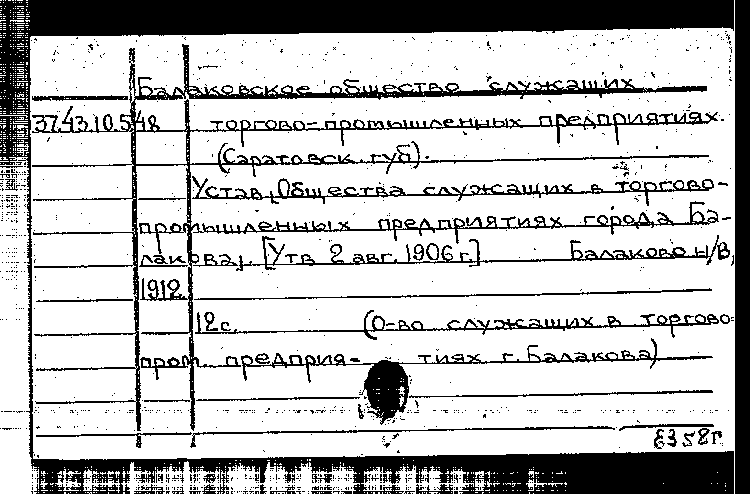 Балаковское общество служащих
37.43.10.548 торгово-промышленных предприятиях.
(Саратовск. губ).
Устав Общества служащих в торгово-
промышленных предприятиях города Ба-
лакова. [Утв 2 авг. 1906 г.] Балаково н/В,
1912.
12 с. (О-во служащих в торгово-
пром. предприя- тиях г. Балакова)
Е358Г